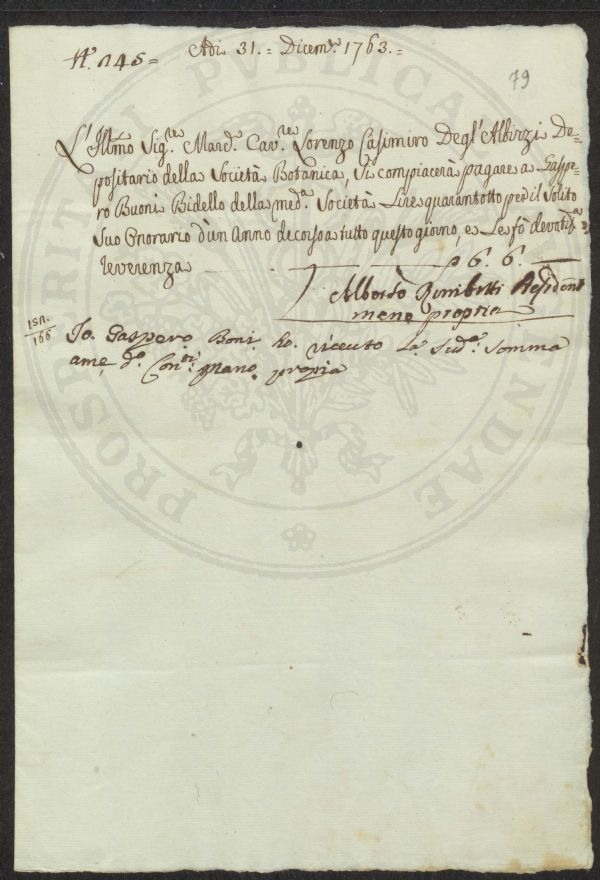 N.° 145 =
Adi 31. = Dicem.e 1763. =
79
L' Ill̃mo Sig.re March.e Cav.re Lorenzo Casimiro Degl' Albizzi De=
positario della Società Botanica, si compiacerà pagare a Gaspe=
ro Buoni Bidello della med.a Società Lire quarantotto per il Solito
Suo Onorario d'un Anno decorso a tutto questo giorno, e Le fò devotis.a
reverenza
6. 6.
Alberto Rimbotti Presidente
mano propria
166
Io. Gaspero. Boni. ho. riceuto la. Sud.a: Somma
ame d.o Con.ti mano. propia
PROSPERITATI PVBLICAE AVGENDAE